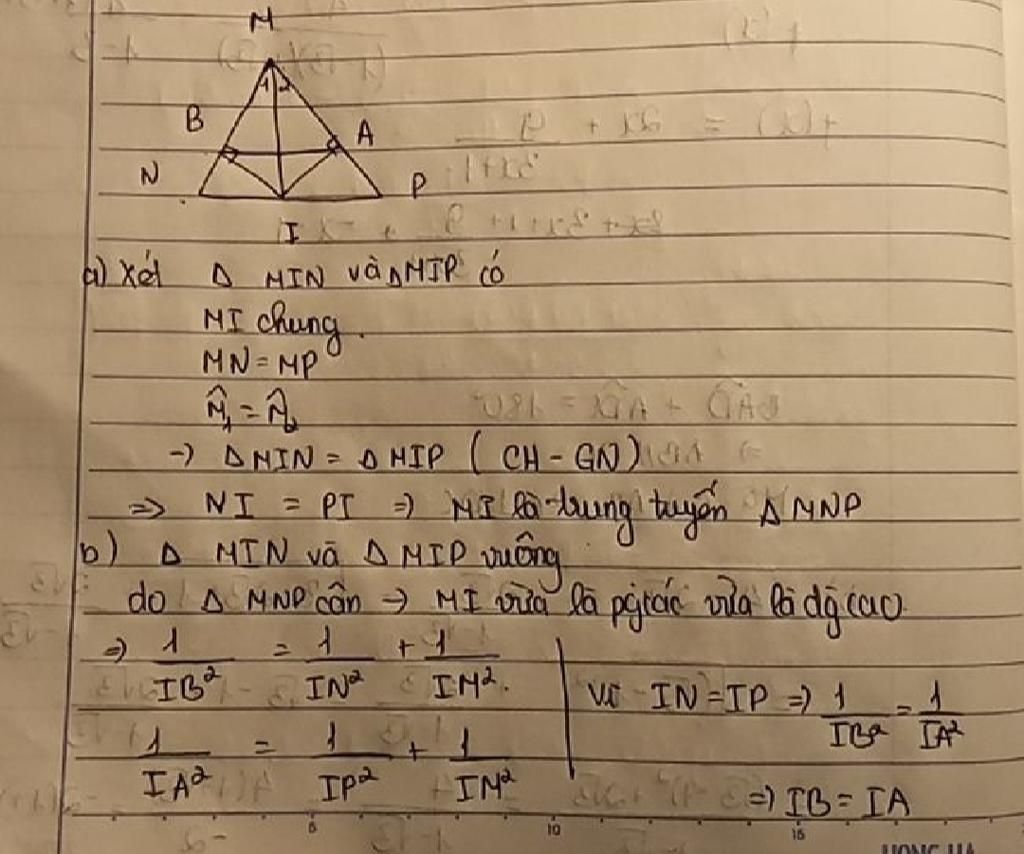 M
1 2
B
A
N
P
I
a) Xét Δ MIN và ΔMIP có
MI chung.
MN = MP
M̂₁ = M̂₂
-) Δ MIN = Δ MIP ( CH - GN)
=> NI = PI => MI là trung tuyến Δ MNP
b) Δ MIN và Δ MIP vuông
do Δ MNP cân -> MI vừa là pgiác vừa là đg cao
=> 1/IB² = 1/IN² + 1/IM².
1/IA² = 1/IP² + 1/IM²
Vì IN = IP => 1/IB² = 1/IA²
=> IB = IA
5 10 15
HONG HA